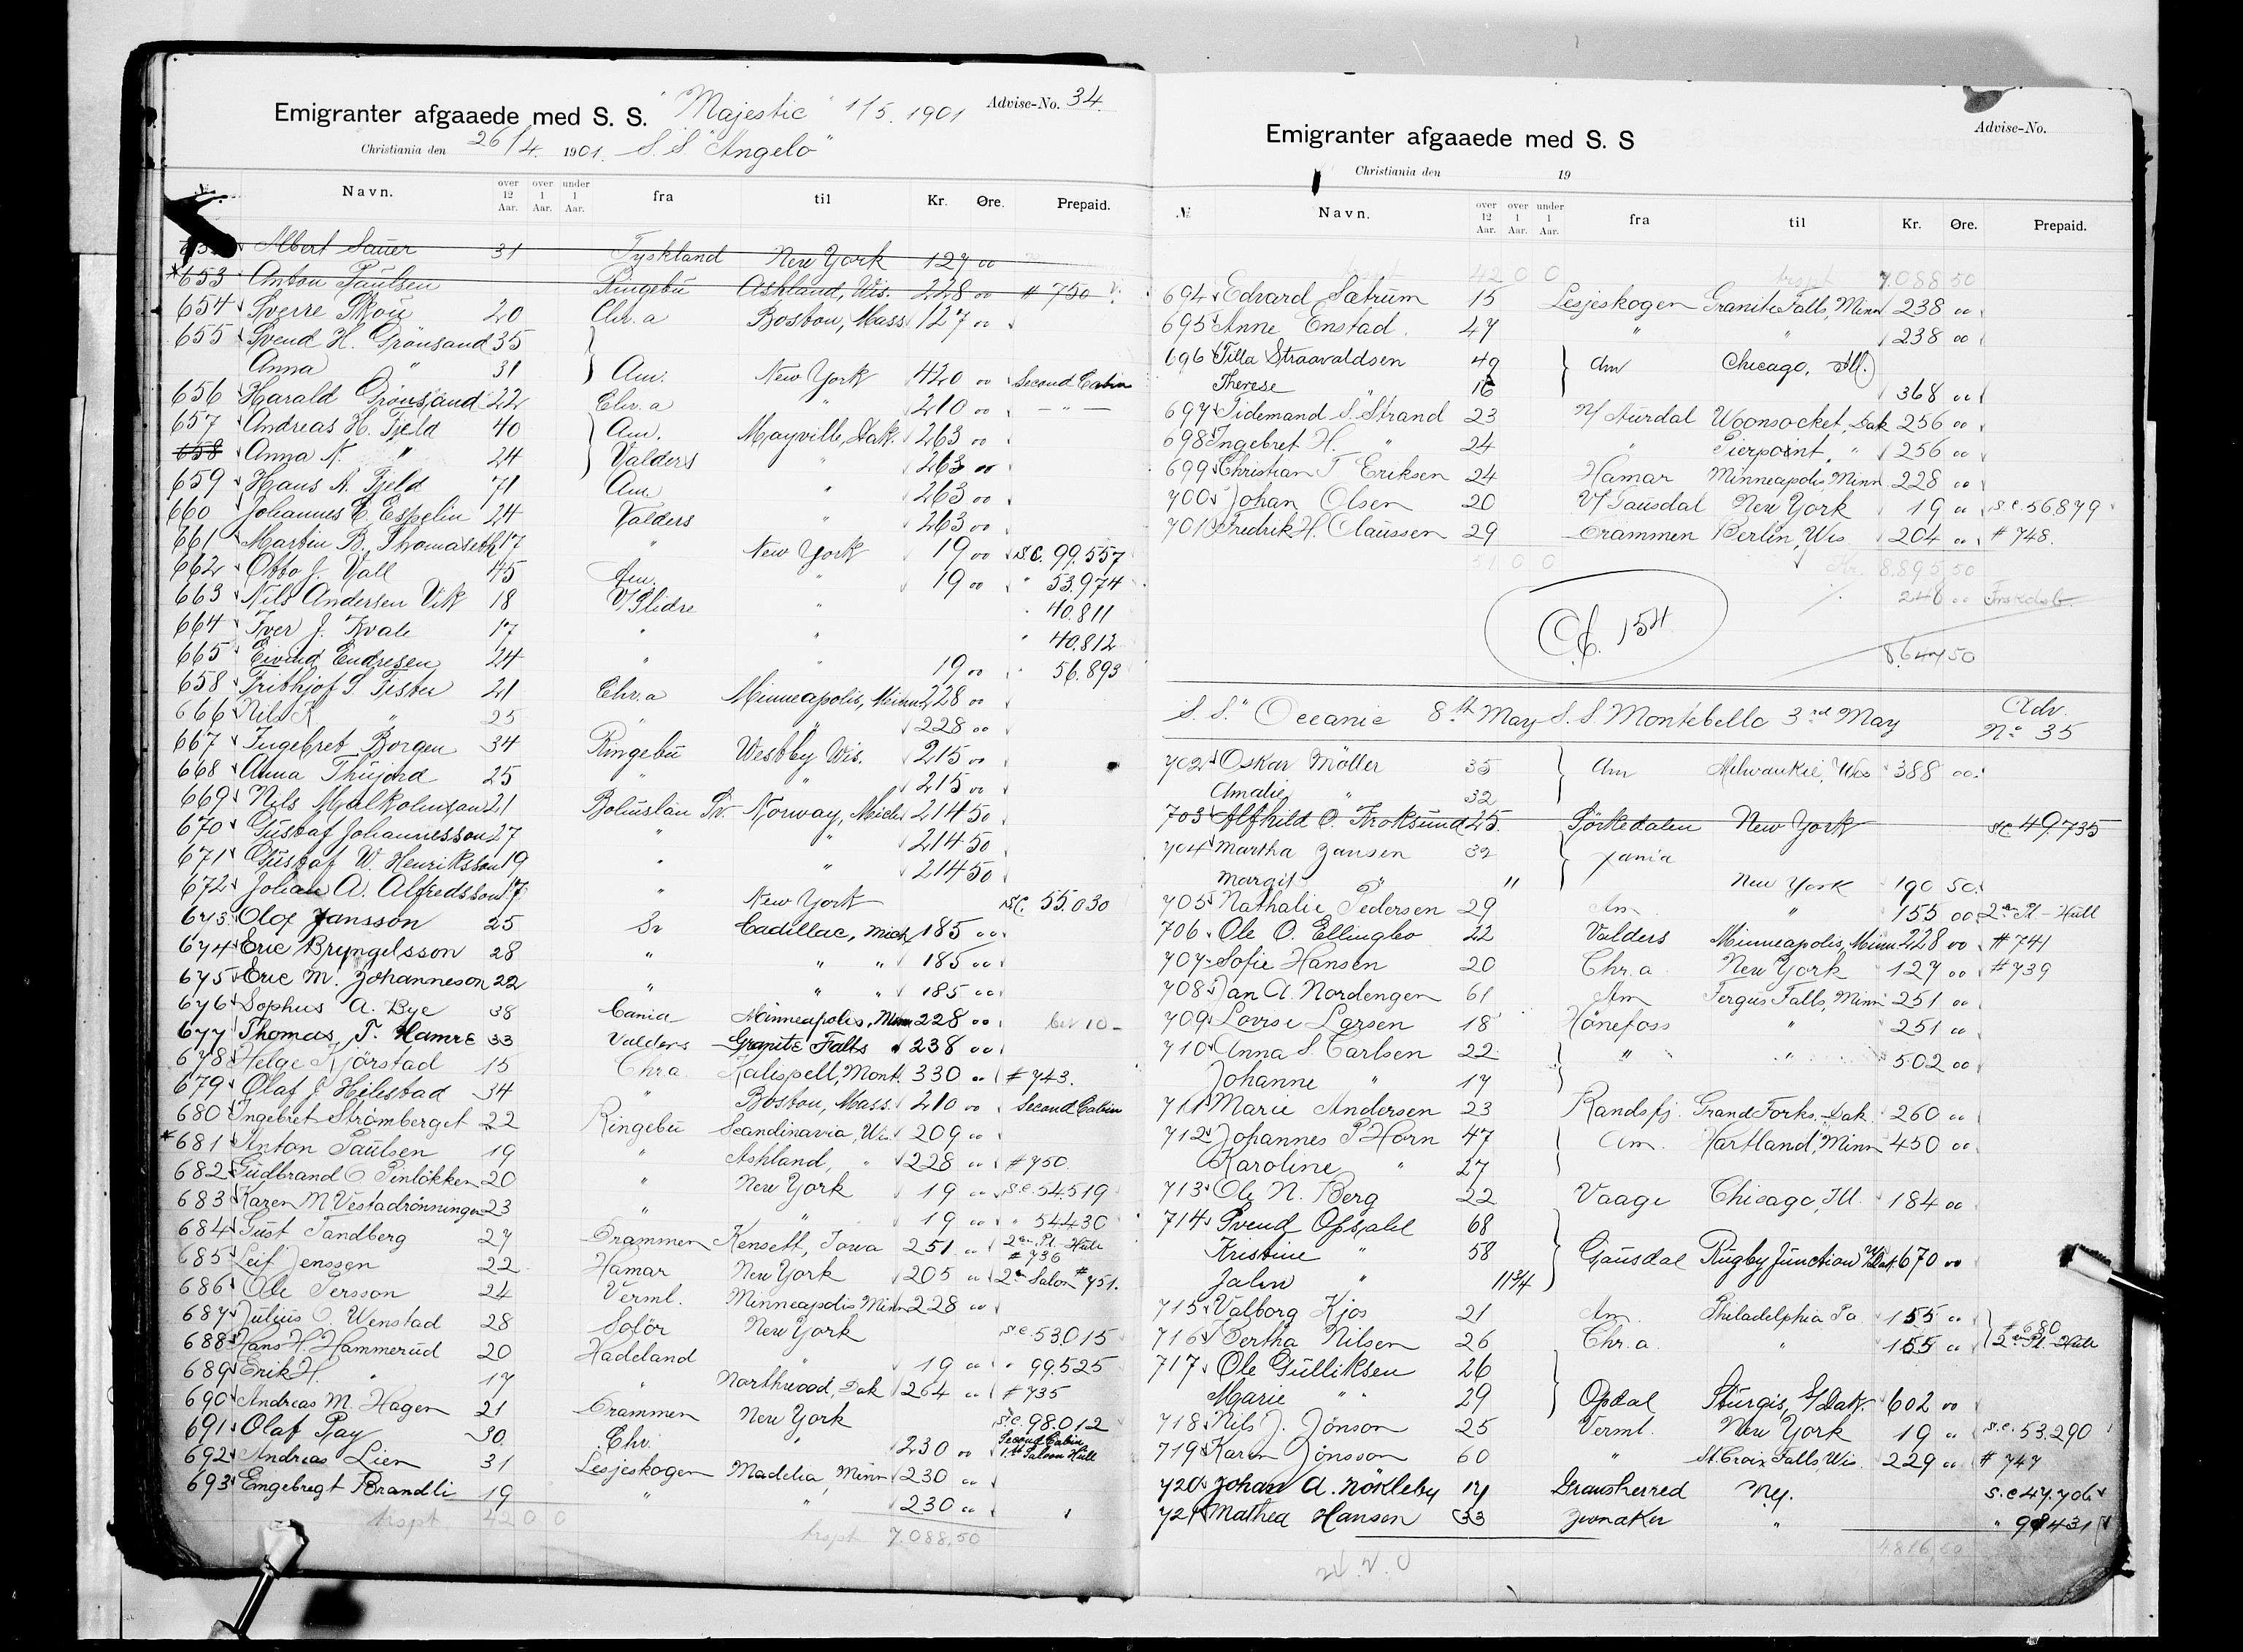 Emigranter afgaaede med S. S. "Majestic" 1/5. 1901 Advise-No. 34.
Christiania den 26/4. 1901. S.S "Angelo"
Navn. over 12 Aar. over 1 Aar. under 1 Aar. fra til Kr. Øre. Prepaid.
Albert Sauer 31 Tyskland New York 127 00
*653 Anton Paulsen Ringebu Ashland, Wis. 228 00 # 750
654 Sverre Skou 20 Chr.a Boston, Mass 127 00
655 Svend H. Grönsand 35
Anna " 31 Am. New York 420 00 Second Cabin
656 Harald Grönsand 22 Chr.a " 210 00 — " —
657 Andreas H. Fjeld 40 Am. Mayville, Dak. 263 00
658 Anna N. " 24 Valders " 263 00
659 Hans A. Fjeld 71 Am " 263 00
660 Johannes E. Espelin 24 Valders " 263 00
661 Martin B. Thomaseth 17 " New York 19 00 s.c. 99.557
662 Otto J. Vall 45 Am. " 19 00 " 53.974
663 Nils Andersen Vik 18 V/Slidre " " 40.811
664 Iver J. Kvale 17 " " " 40.812
665 Eivind Endresen 24 " " 19 00 " 56.893
658 Frithjof S. Tister 21 Chr.a Minneapolis, Minn 228 00
666 Nils K " 25 " " 228 00
667 Ingebret Borgen 34 Ringebu Westby Wis. 215 00
668 Anna Thujord 25 " " 215 00
669 Nils Malkolmson 21 Bohuslän Sv. Norway, Mich 214 50
670 Gustaf Johannesson 27 " " 214 50
671 Gustaf W. Henriksson 19 " " 214 50
672 Johan A. Alfredsson 17 " New York s.c. 55.030
673 Olof Jansson 25 Sv Cadillac, Mich 185 00
674 Eric Bryngelsson 28 " " " 185 00
675 Eric M. Johanneson 22 " " " 185 00
676 Sophus A. Bye 38 Cania Minneapolis, Minn 228 00 bet 10 -
677 Thomas T. Hamre 33 Valders Granite Falls " 238 00
678 Helge Kjörstad 15 Chr a Kalispell, Mont. 330 00 # 743.
679 Olaf J. Hilestad 34 " Boston, Mass. 210 00 Second Cabin
680 Ingebret Strømberget 22 Ringebu Scandinavia, Wis. 209 00
*681 Anton Paulsen 19 " Ashland, " 228 00 # 750.
682 Gudbrand O Penlökken 20 " New York 19 00 s.c. 54519
683 Karen M Vestadrönningen 23 " " 19 00 " 54430
684 Gust Sandberg 27 Drammen Kensett, Iowa 251 00 2en Pl. - Hull # 736
685 Leif Jenssen 22 Hamar New York 205 00 2en Salon # 751.
686 Ole Persson 24 Verml. Minneapolis Minn 228 00
687 Julius O. Wenstad 28 Solör New York s.c. 53.015
688 Hans H. Hammerud 20 Hadeland " 19 00 " 99.525
689 Erik H. " 17 " Northwood, Dak 264 00 # 735
690 Andreas M. Hagen 21 Drammen New York s.c. 98.012
691 Olaf Ray 30 Chr. " 230 00 Second Cabin 1st Saloon Hull
692 Andreas Lien 31 Lesjeskogen Madelia, Minn 230 00
693 Engebregt Brandli 19 " " 230 00
trspt 42 0 0 trspt 7.088,50
Emigranter afgaaede med S. S Advise-No.
Christiania den 19
№ Navn. over 12 Aar. over 1 Aar. under 1 Aar. fra til Kr. Øre. Prepaid.
trspt 42 0 0 trspt 7.088 50
694 Edvard Sætrum 15 Lesjeskogen Granite Falls, Minn 238 00
695 Anne Enstad. 47 " " 238 00
696 Tilla Straavaldsen 49 Am Chicago, Ill.
Therese " 16 368 00
697 Tidemand S. Strand 23 N/ Aurdal Woonsocket, Dak 256 00
698 Ingebret H. " 24 " Pierpoint, " 256 00
699 Christian T Eriksen 24 Hamar Minneapolis, Minn 228 00
700 Johan Olsen 20 V/ Gausdal New York 19 00 s.c. 56879
701 Fredrik H. Claussen 29 Drammen Berlin, Wis 204 00 # 748.
51 0 0 Kr. 8.895,50
248 00
8.647 50
Cf. 154
S. S. "Oceanic 8th May S. S. Montebello 3rd May Adv. No 35
702 Oskar Möller 35 Am Milwaukie, Wis 388 00
Amalie " 32
703 Alfhild O. Kroksund 25. Sörkedalen New York s.c 49735
704 Martha Jansen 32 Xania
Margit " 11 New York 190 50
705 Nathalie Pedersen 29 Am " 155 00 2en Pl - Hull
706 Ole O. Ellingbo 22 Valders Minneapolis, Minn 228 00 # 741
707 Sofie Hansen 20 Chr. a New York 127 00 # 739
708 Jan A. Nordengen 61 Am Fergus Falls, Minn 251 00
709 Lovise Larsen 18 Hönefoss " 251 00
710 Anna S. Carlsen 22 " " 502 00
Johanne " 17
711 Marie Andersen 23 Randsfj. Grand Forks, Dak 260 00
712 Johannes P Horn 47 Am. Hartland, Minn 450 00
Karoline " 27
713 Ole N. Berg 22 Vaage Chicago, Ill. 184 00
714 Svend Opsahl 68
Kristine " 58 Gausdal Rugby Junction 670 00
John " 11 3/4
715 Valborg Kjos 21 Am. Philadelphia Pa 155 00 # 680
716 Bertha Nilsen 26 Chr. a. " 155 00 2en Pl. Hull
717 Ole Gulliksen 26
Marie " " 29 Opdal Sturgis, S/Dak. 602 00
718 Nils J. Jönson 25 Verml. New York 19 " s.c. 53.290
719 Karin Jönsson 60 " St. Croix Falls, Wis. 229 00 # 747
720 Johan A. Nökleby 17 Gransherred N.Y. s.c 47.706
721 Mathea Hansen 33 " 98431
4.816,50